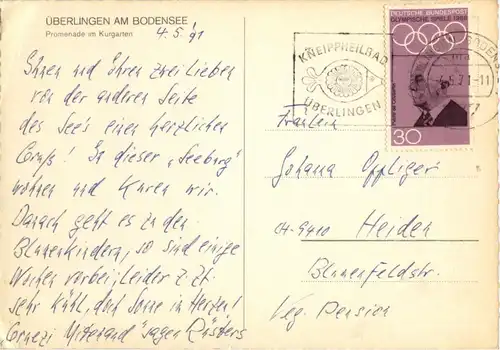 ÜBERLINGEN AM BODENSEE
Promenade im Kurgarten
4.5.'71
Ihnen und Ihren zwei Lieben
von der anderen Seite
des See's einen herzlichen
Gruß! In dieser „Seeburg"
wohnen und Kuren wir.
Danach geht es zu den
Blumenkindern, so sind einige
Wochen vorbei, leider z. Zt.
sehr kühl, doch Sonne im Herzen!
miteinand" sagen Rüsters
KNEIPPHEILBAD
ÜBERLINGEN
DEUTSCHE BUNDESPOST
OLYMPISCHE SPIELE 1968
30
Fräulein
Johana Oppliger
CH-9410 Heiden
Blumenfeldstr.
Veg. Pension